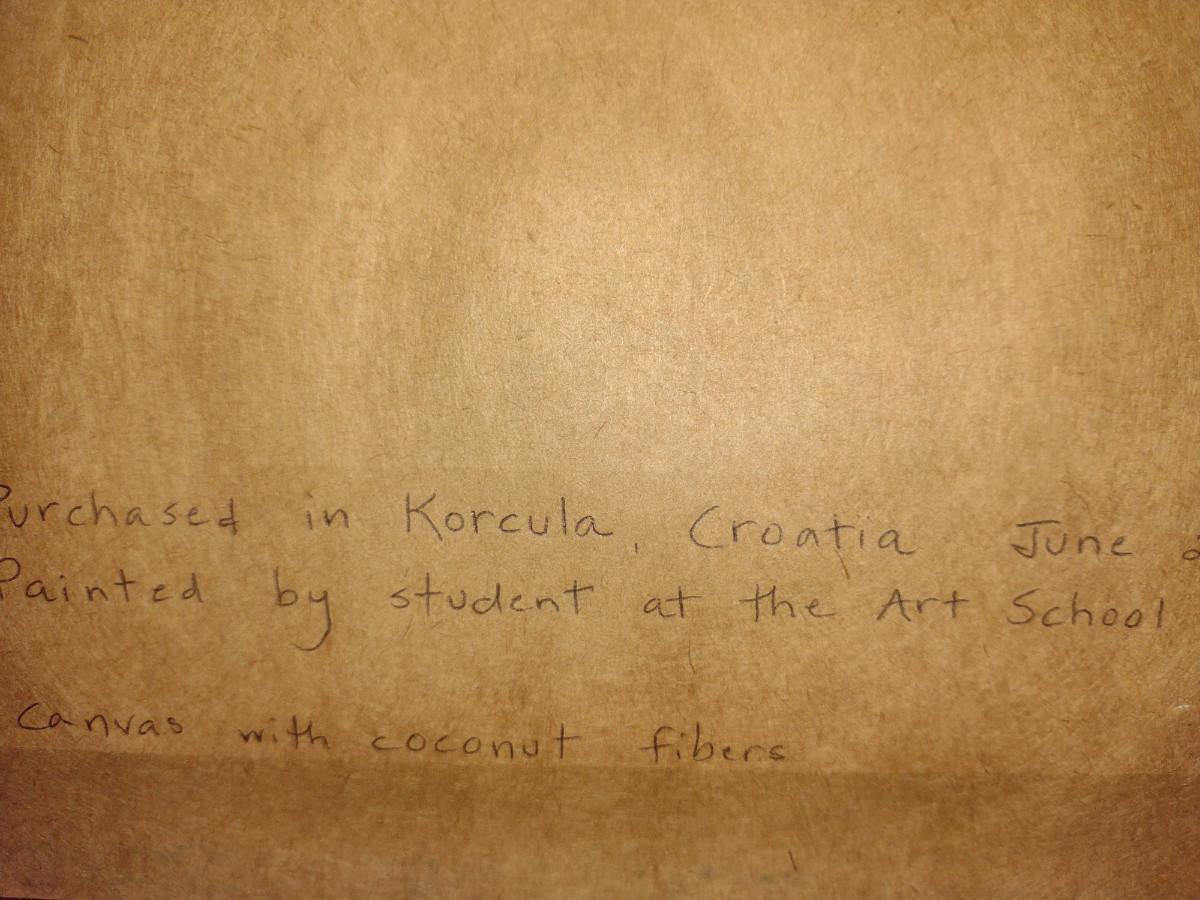 Purchased in Korcula, Croatia June
Painted by student at the Art School
Canvas with coconut fibers